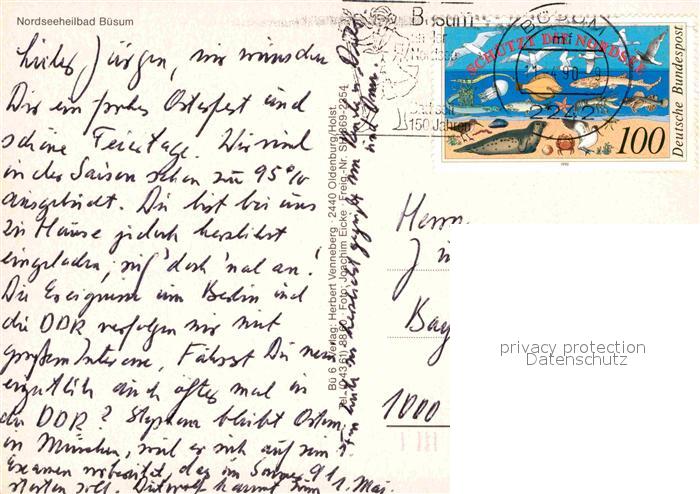 Nordseeheilbad Büsum
Lieber Jürgen, wir wünschen
Dir ein frohes Osterfest und
schöne Feiertage. Wir sind
in der Saison schon zu 95%
ausgebucht. Du bist bei uns
zu Hause jedoch herzlichst
eingeladen, ruf' doch 'nal an!
Die Ereignisse um Berlin und
die DDR verfolgen wir mit
großem Interesse, Fährst Du nun
eigentlich auch öfter mal in
die DDR? Stephan bleibt Ostern
in München, weil er sich auf sein 1.
Examen vorbereitet, das im Sommer 91
starten soll. kommt zum 1. Mai.
Bü 6 Verlag: Herbert Venneberg · 2440 Oldenburg/Holst.
Tel. (0 43 61) 88 60 · Foto: Joachim Eicke · Freig.-Nr. SH 869-2354
herzlichst gegrüßt von
und
Büsum
Nordsee
150 Jahre
BÜSUM
90-9
2242
SCHÜTZT DIE NORDSEE
100
Deutsche Bundespost
1990
Herrn
Jü
Bay
1000
privacy protection
Datenschutz